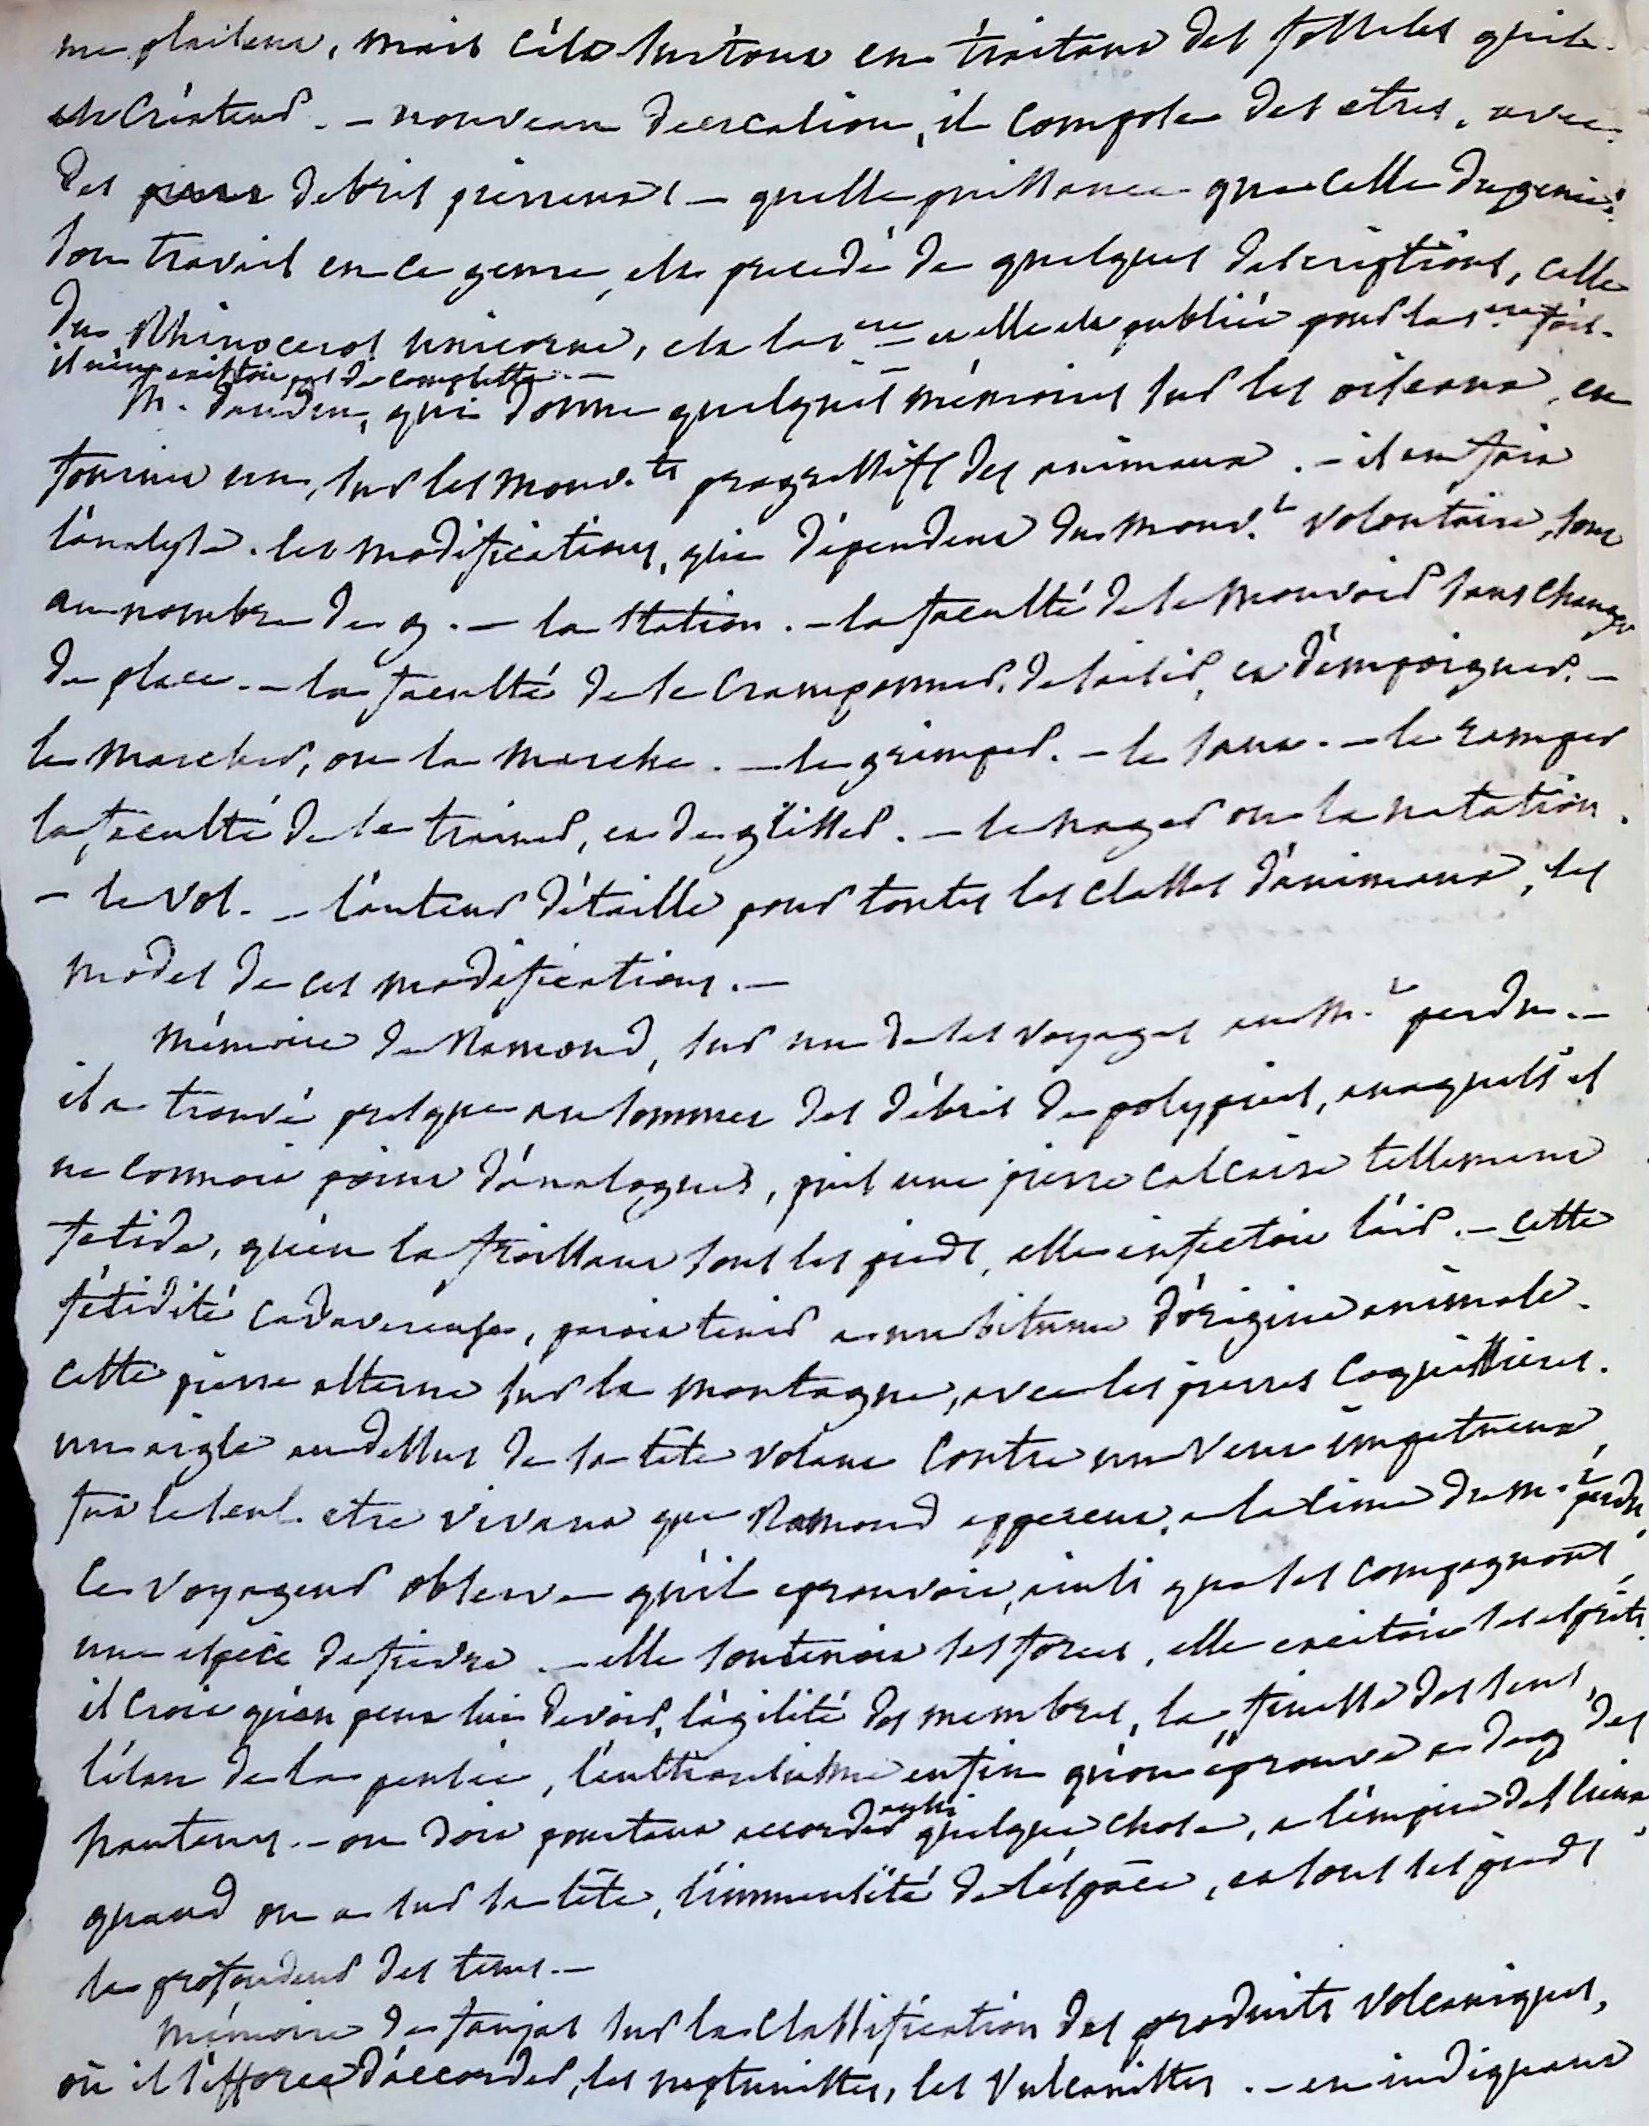 me plaisent, mais c'est surtout en traitant des fossiles qu'il
est créateur. - nouveau deucalion, il compose des etres, avec
des debris pierreux - quelle puissance que celle du genie.
son travail en ce genre, est precedé de quelques descriptions, celle
du Rhinoceros unicorne, est la 1ere elle est publiée pour la 1ere fois.
il n'en existoit pas de complette. -
M. daudin, qui donne quelques mémoires sur les oiseaux, en
fournit un, sur les mouv.ts progressifs des animaux. - il en fait
l'analyse. les modifications, qui dépendent du mouv.t volontaire, sont
au nombre de 9. - la station. - la faculté de se mouvoir sans changer
de place. - la faculté de se cramponner, de saisir, et d'empoigner. -
le marcher, ou la marche. - le grimper. - le saut. - le ramper
la faculté de se trainer, et de glisser. - le nager ou la natation.
- le vol. - l'auteur détaille pour toutes les classes d'animaux, les
modes de ces modifications. -
Mémoire de Ramond, sur un de ses voyages au M.t perdu. -
il a trouvé presque au sommet des débris de polypiers, auxquels il
ne connoit point d'analogues, puis une pierre calcaire tellement
fetide, qu'en la froissant sous les pieds, elle infectoit l'air. - cette
fétidité cadavereuse, paroit tenir a un bitume d'origine animale.
cette pierre alterne sur la montagne, avec les pierres coquillieres.
un aigle au dessus de sa tête volant contre un vent impetueux,
fut le seul etre vivant que Ramond apperçut, a la cime du M.t perdu
le voyageur observe qu'il eprouvoit, ainsi que ses compagnons,
une espèce de fievre. - elle soutenoit les forces, elle excitoit les esprits.
il croit qu'on peut lui devoir, l'agilité des membres, la finesse des sens,
l'élan de la pensée, l'enthousiasme enfin qu'on éprouve a des
hauteurs. - on doit pourtant accorder aussi quelque chose, a l'empire des lieux
quand on a sur sa tête, l'immensité de l'espace, et sous les pieds
la profondeur des tems. -
Mémoire de faujas sur la classification des produits volcaniques,
où il s'efforce d'accorder, les neptunistes, les vulcanistes. - en indiquant